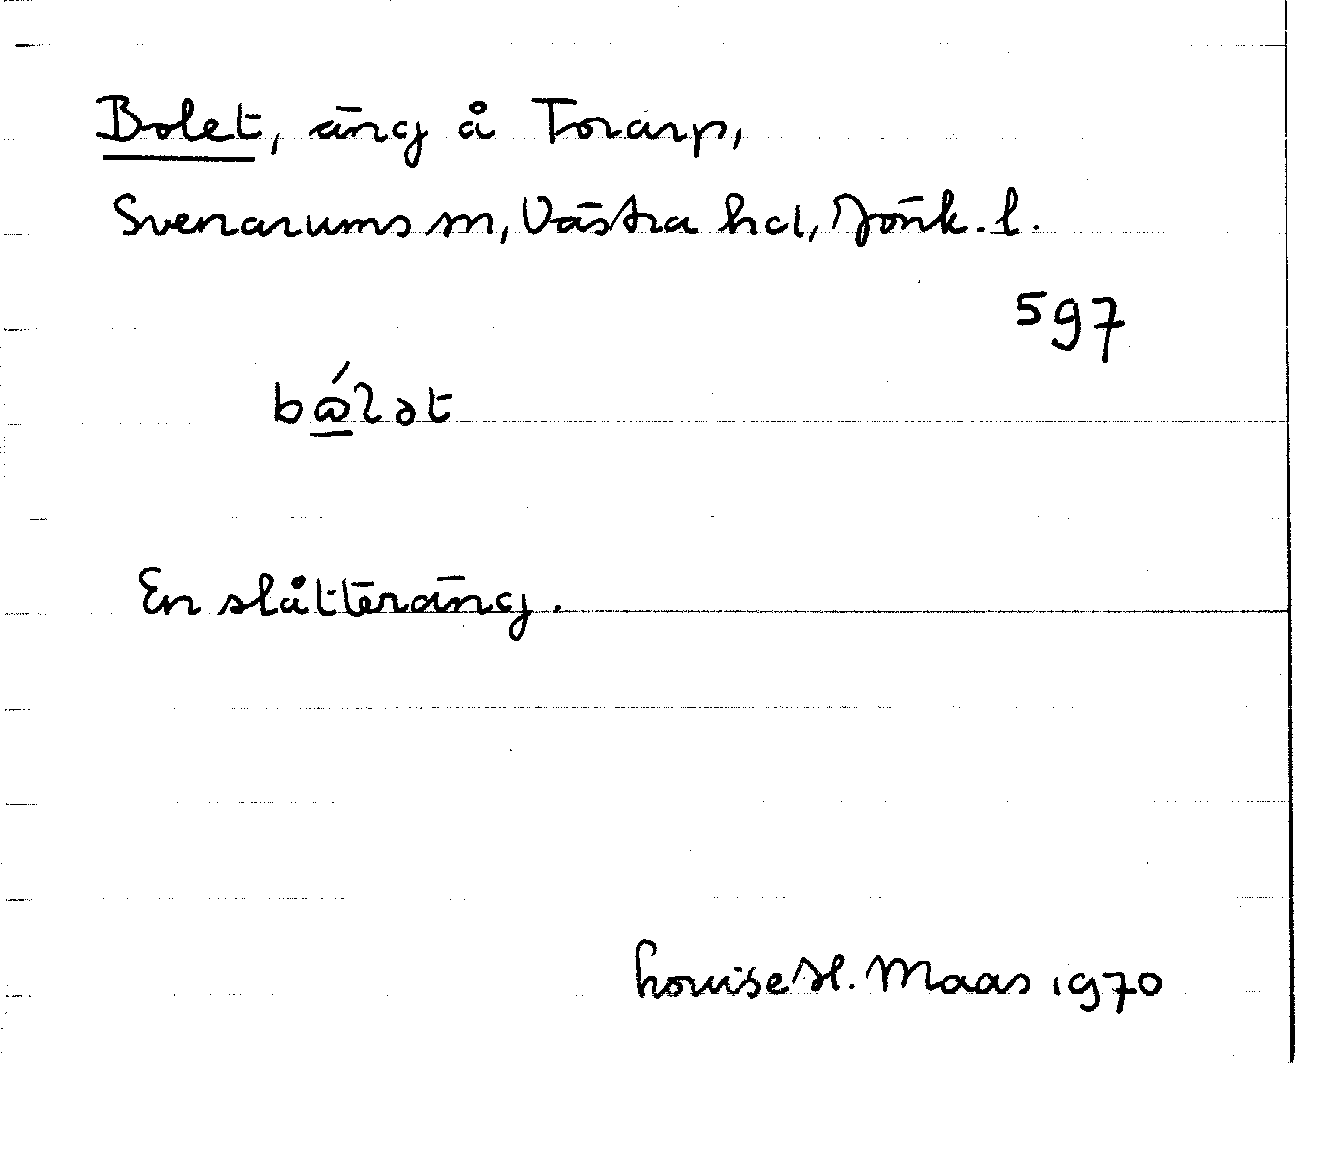 Bolet, äng å Torarp,
Svenarums sn, Västra hd, Jönk. l.
597
En slåtteräng.
Louise H. Maas 1970